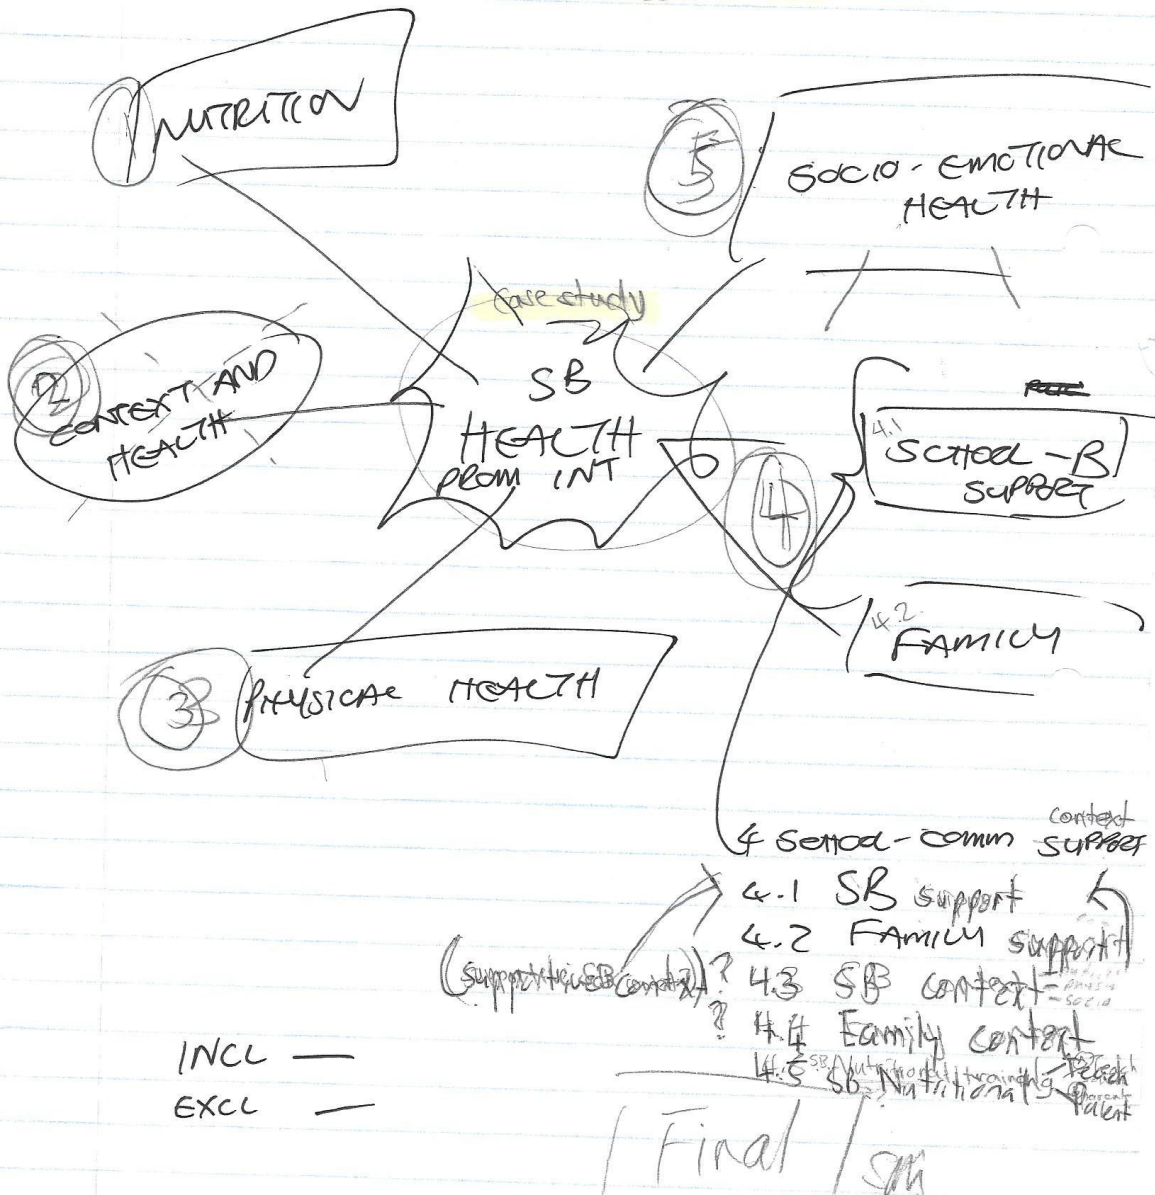 1 NUTRITION
5
SOCIO-EMOTIONAL
HEALTH
case study
SB
HEALTH
PROM INT
2
CONTEXT AND
HEALTH
4
4.1
SCHOOL-B
SUPPORT
4.2
FAMILY
3 PHYSICAL HEALTH
context
4 SCHOOL-COMM SUPPORT
4.1 SB support
4.2 FAMILY support
(supportive SB context) ? 4.3 SB context
? 4.4 Family context
4.5 SB Nutritional training
Teach
Parent
INCL —
EXCL —
Final